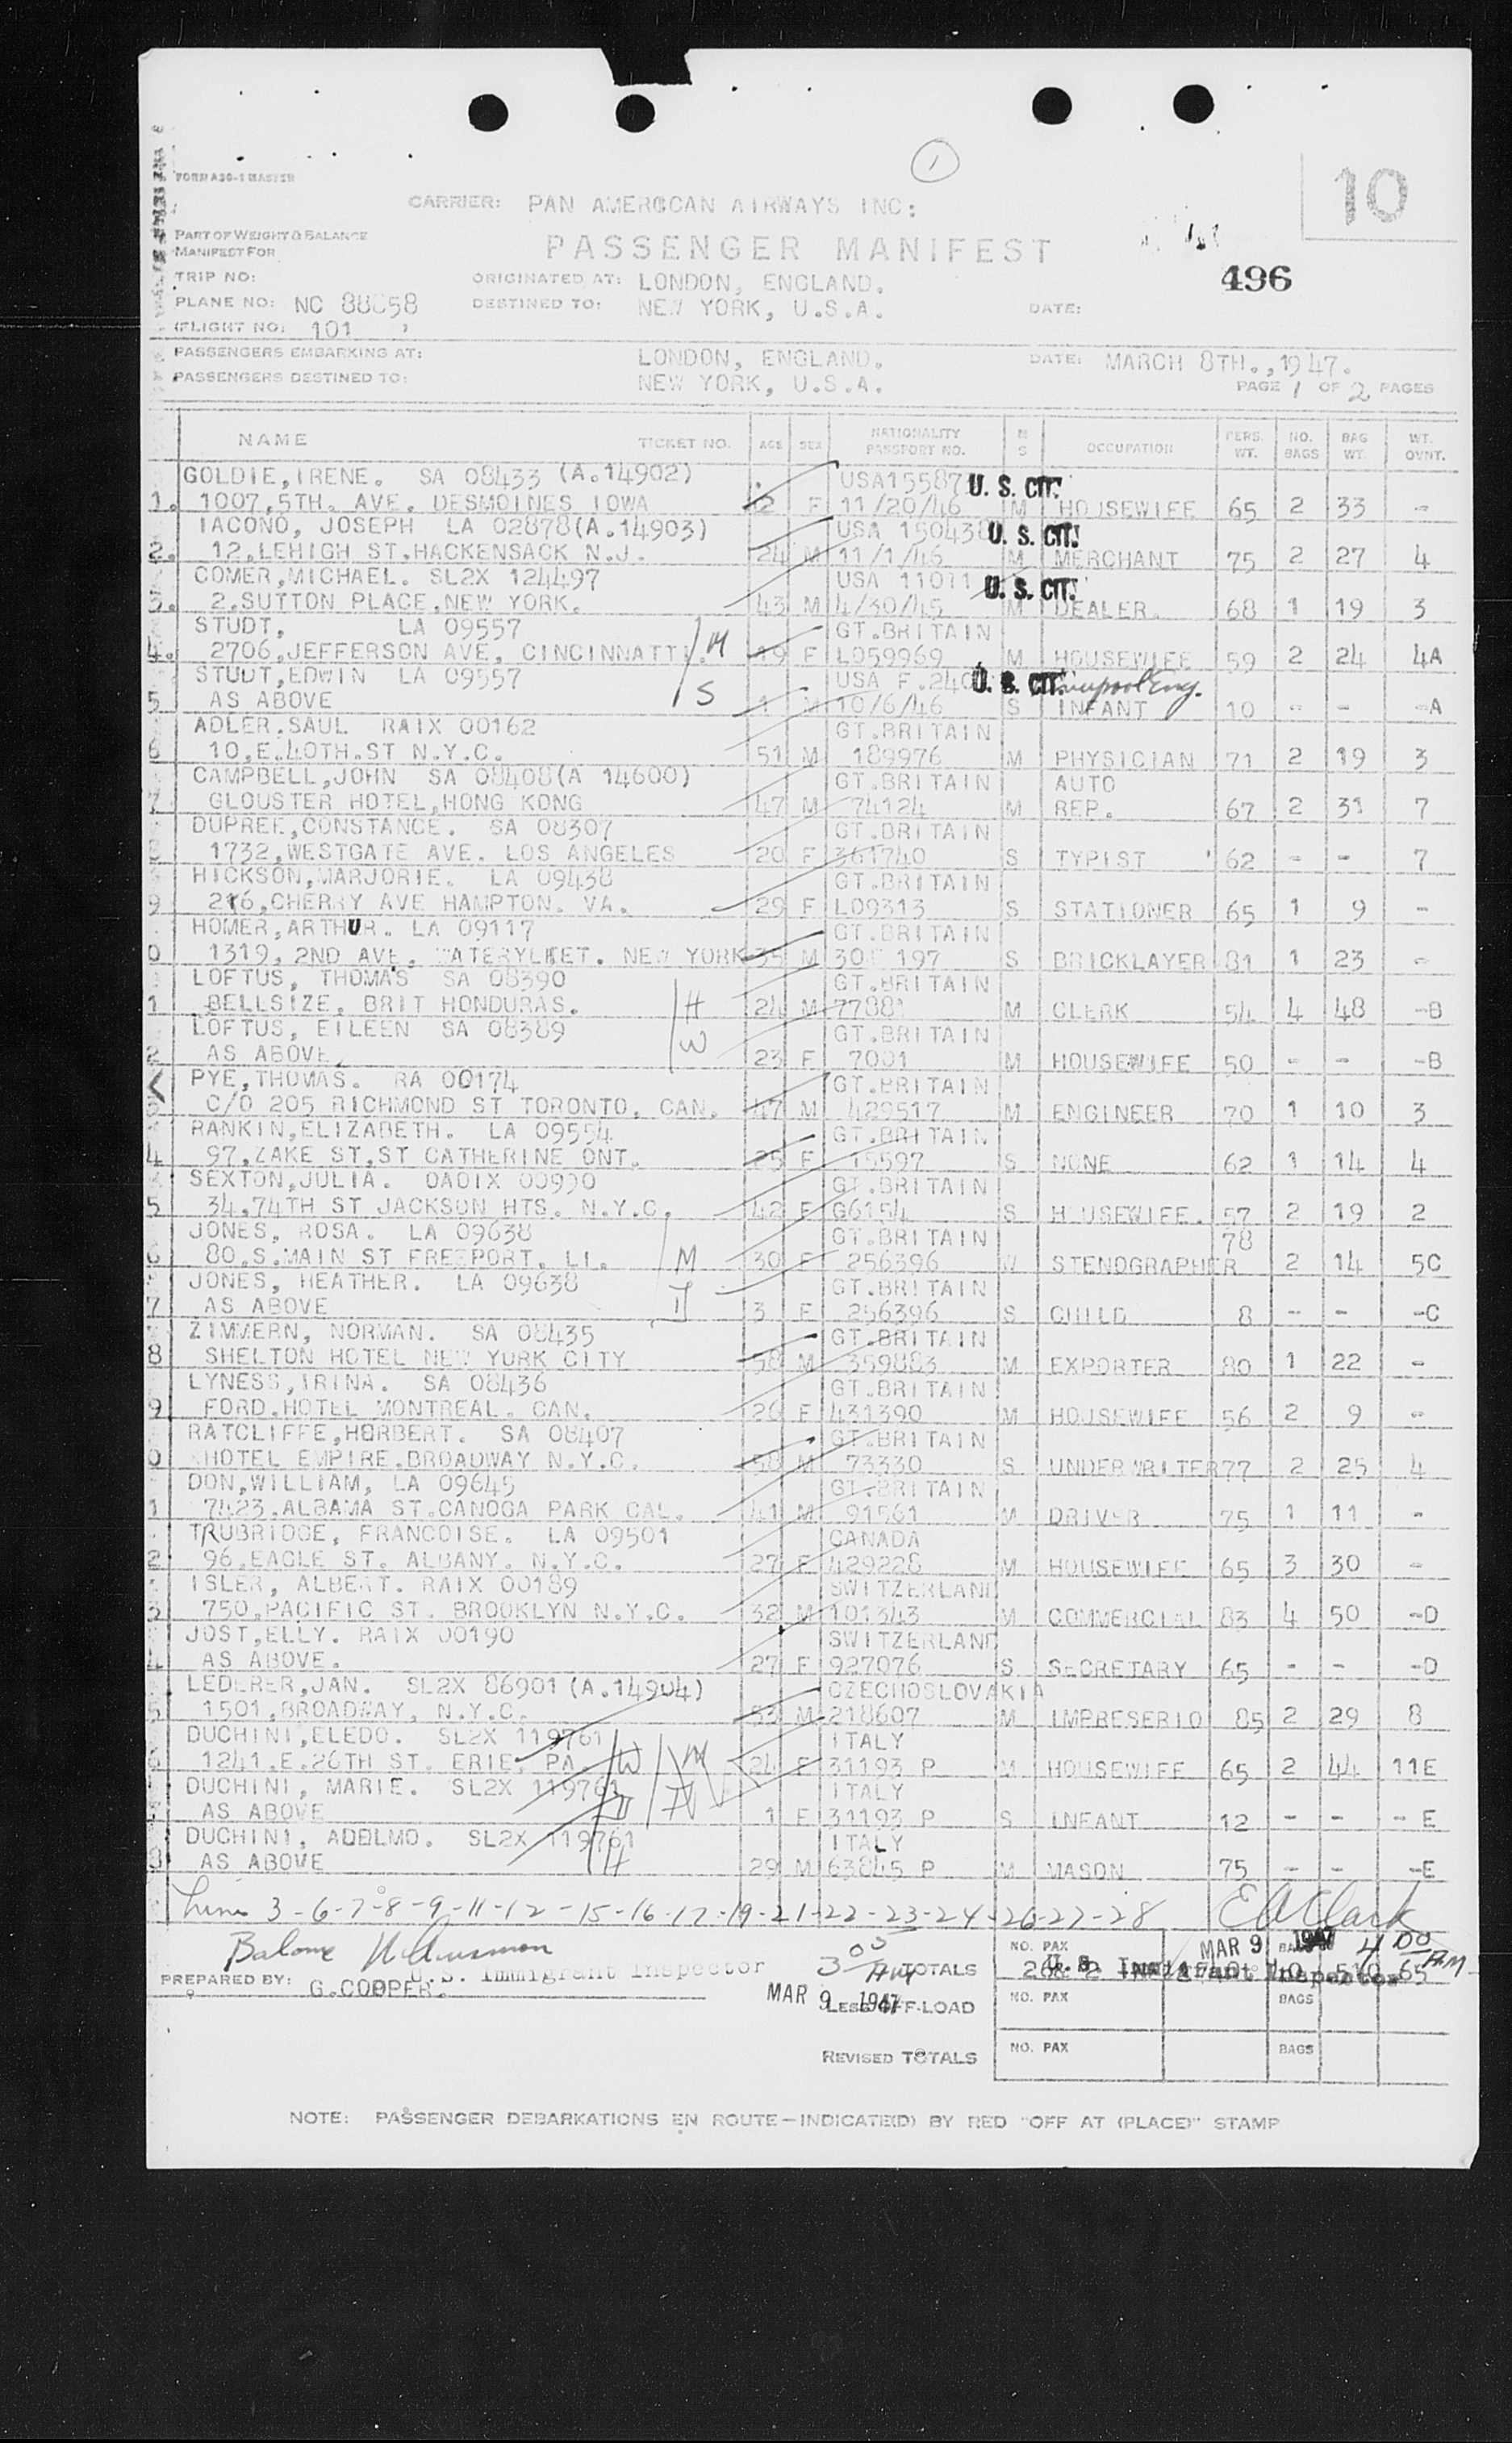 1
FORM A30-1 MASTER
10
CARRIER: PAN AMEROCAN AIRWAYS INC:
PART OF WEIGHT & BALANCE
PASSENGER MANIFEST
MANIFEST FOR
496
TRIP NO: ORIGINATED AT: LONDON, ENGLAND.
PLANE NO: NC 88858 DESTINED TO: NEW YORK, U.S.A. DATE:
(FLIGHT NO: 101 )
PASSENGERS EMBARKING AT: LONDON, ENGLAND. DATE: MARCH 8TH.,1947.
PASSENGERS DESTINED TO: NEW YORK, U.S.A. PAGE 1 OF 2 PAGES
NAME TICKET NO. AGE SEX NATIONALITY PASSPORT NO. M S OCCUPATION PERS. WT. NO. BAGS BAG WT. WT. OVNT.
GOLDIE,IRENE. SA 08433 (A.14902) USA15587 U. S. CIT.
1. 1007,5TH. AVE. DESMOINES IOWA F 11/20/46 M HOUSEWIFE 65 2 33 -
IACONO, JOSEPH LA 02878(A.14903) USA 150438 U. S. CIT.
2. 12,LEHIGH ST.HACKENSACK N.J. 24 M 11/1/46 M MERCHANT 75 2 27 4
COMER,MICHAEL. SL2X 124497 USA 11071 U. S. CIT.
3. 2.SUTTON PLACE,NEW YORK. 43 M 4/30/45 M DEALER. 68 1 19 3
STUDT, LA 09557 GT.BRITAIN
4. 2706,JEFFERSON AVE, CINCINNATTI. M 19 F L059969 M HOUSEWIFE 59 2 24 4A
STUDT,EDWIN LA 09557 USA F.240 U. S. CIT. Liverpool Eng.
5 AS ABOVE S 1 M 10/6/46 S INFANT 10 - - -A
ADLER.SAUL RAIX 00162 GT.BRITAIN
6 10,E.40TH.ST N.Y.C. 51 M 189976 M PHYSICIAN 71 2 19 3
CAMPBELL,JOHN SA 08408(A 14600) GT.BRITAIN AUTO
7 GLOUSTER HOTEL,HONG KONG 47 M 74124 M REP. 67 2 31 7
DUPREE,CONSTANCE. SA 08307 GT.BRITAIN
8 1732,WESTGATE AVE. LOS ANGELES 20 F 361740 S TYPIST 62 - - 7
HICKSON,MARJORIE. LA 09438 GT.BRITAIN
9 216,CHERRY AVE HAMPTON. VA. 29 F L09313 S STATIONER 65 1 9 -
HOMER,ARTHUR. LA 09117 GT.BRITAIN
0 1319, 2ND AVE. WATERYLIET. NEW YORK 35 M 197 S BRICKLAYER 81 1 23 -
LOFTUS, THOMAS SA 08390 GT.BRITAIN
1 BELLSIZE, BRIT HONDURAS. H 24 M 7788 M CLERK 54 4 48 -B
LOFTUS, EILEEN SA 08389 W GT.BRITAIN
2 AS ABOVE. 23 F 7001 M HOUSEWIFE 50 - - -B
PYE,THOMAS. RA 00174 GT.BRITAIN
C/O 205 RICHMOND ST TORONTO. CAN. 47 M 429517 M ENGINEER 70 1 10 3
RANKIN,ELIZABETH. LA 09554 GT.BRITAIN
4 97,ZAKE ST,ST CATHERINE ONT. 25 F 15597 S NONE 62 1 14 4
SEXTON,JULIA. OAOIX 00990 GT.BRITAIN
5 34.74TH ST JACKSON HTS. N.Y.C. 42 F G6154 S HOUSEWIFE. 57 2 19 2
JONES, ROSA. LA 09638 GT.BRITAIN 78
6 80.S.MAIN ST FREEPORT. LI. M 30 F 256396 W STENOGRAPHER 2 14 5C
JONES, HEATHER. LA 09638 GT.BRITAIN
7 AS ABOVE D 3 F 256396 S CHILD 8 - - -C
ZIMMERN, NORMAN. SA 08435 GT.BRITAIN
8 SHELTON HOTEL NEW YORK CITY 58 M 359883 M EXPORTER 80 1 22 -
LYNESS,IRINA. SA 08436 GT.BRITAIN
9 FORD.HOTEL MONTREAL. CAN. 26 F 431390 M HOUSEWIFE 56 2 9 -
RATCLIFFE,HERBERT. SA 08407 GT.BRITAIN
0 HOTEL EMPIRE.BROADWAY N.Y.C. 58 M 73330 S UNDERWRITER 77 2 25 4
DON,WILLIAM, LA 09645 GT.BRITAIN
1 7423.ALBAMA ST.CANOGA PARK CAL. 41 M 91561 M DRIVER 75 1 11 -
TRUBRIDGE, FRANCOISE. LA 09501 CANADA
2 96.EAGLE ST. ALBANY. N.Y.C. 27 F 429228 M HOUSEWIFE 65 3 30 -
ISLER, ALBERT. RAIX 00189 SWITZERLAND
3 750,PACIFIC ST. BROOKLYN N.Y.C. 32 M 101343 M COMMERCIAL 83 4 50 -D
JOST,ELLY. RAIX 00190 SWITZERLAND
4 AS ABOVE. 27 F 927076 S SECRETARY 65 - - -D
LEDERER,JAN. SL2X 86901 (A.14904) CZECHOSLOVAKIA
5 1501,BROADWAY, N.Y.C. 53 M 218607 M IMPRESERIO 85 2 29 8
DUCHINI,ELEDO. SL2X 119761 ITALY
6 1241.E.26TH ST. ERIE. PA W M 24 F 31193 P M HOUSEWIFE 65 2 44 11E
DUCHINI, MARIE. SL2X 119761 ITALY
AS ABOVE D D 1 F 31193 P S INFANT 12 - - - E
DUCHINI, ADDLMO. SL2X 119761 ITALY
8 AS ABOVE H 29 M 63845 P M MASON 75 - - -E
Lines 3-6-7-8-9-11-12-15-16-17-19-21-22-23-24-26-27-28 E A Clark
PREPARED BY: G.COOPER. U.S. Immigrant Inspector 3 00 AM TOTALS NO. PAX MAR 9 1947 BAGS 4 00 PM
U.S. Immigrant Inspector 510 65
MAR 9 1947 LESS OFF-LOAD NO. PAX BAGS
REVISED TOTALS NO. PAX BAGS
NOTE: PASSENGER DEBARKATIONS EN ROUTE—INDICATE(D) BY RED "OFF AT (PLACE)" STAMP